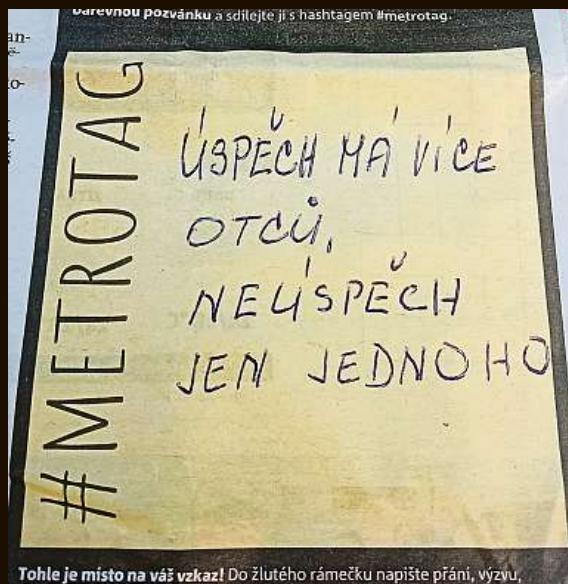 barevnou pozvánku a sdílejte ji s hashtagem #metrotag.
#METROTAG
ÚSPĚCH MÁ VÍCE
OTCŮ,
NEÚSPĚCH
JEN JEDNOHO
Tohle je místo na váš vzkaz! Do žlutého rámečku napište přání, výzvu,